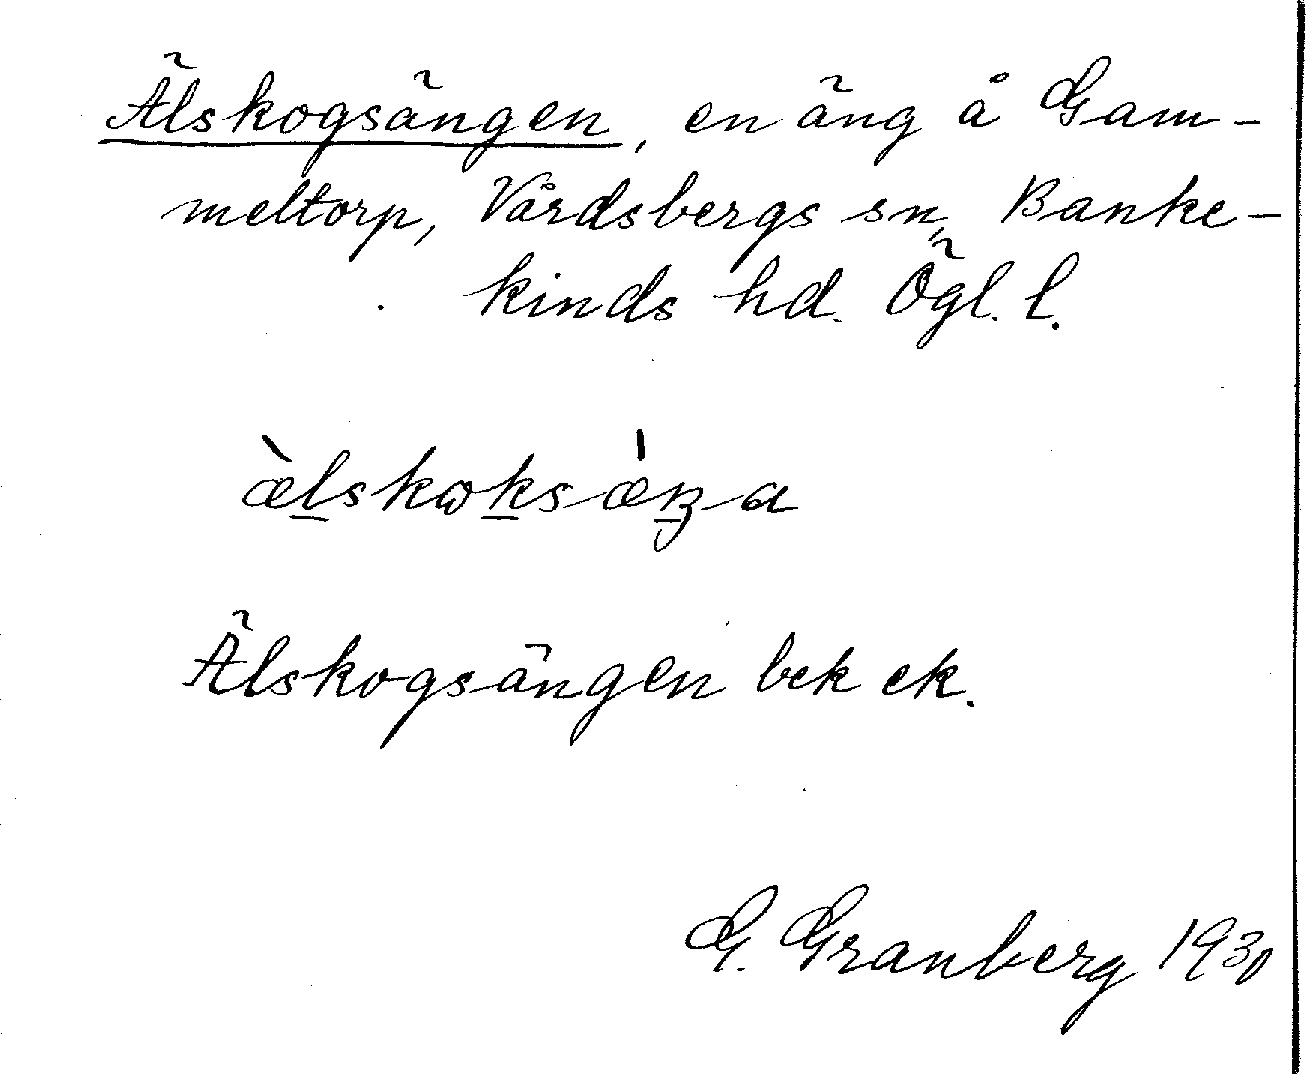 Älskogsängen, en äng å Gam-
meltorp, Vårdsbergs sn, Banke-
kinds hd. Ögl. l.
æ̀lskωksæ̀ŋa
Älskogsängen bek ek.
G. Granberg 1930